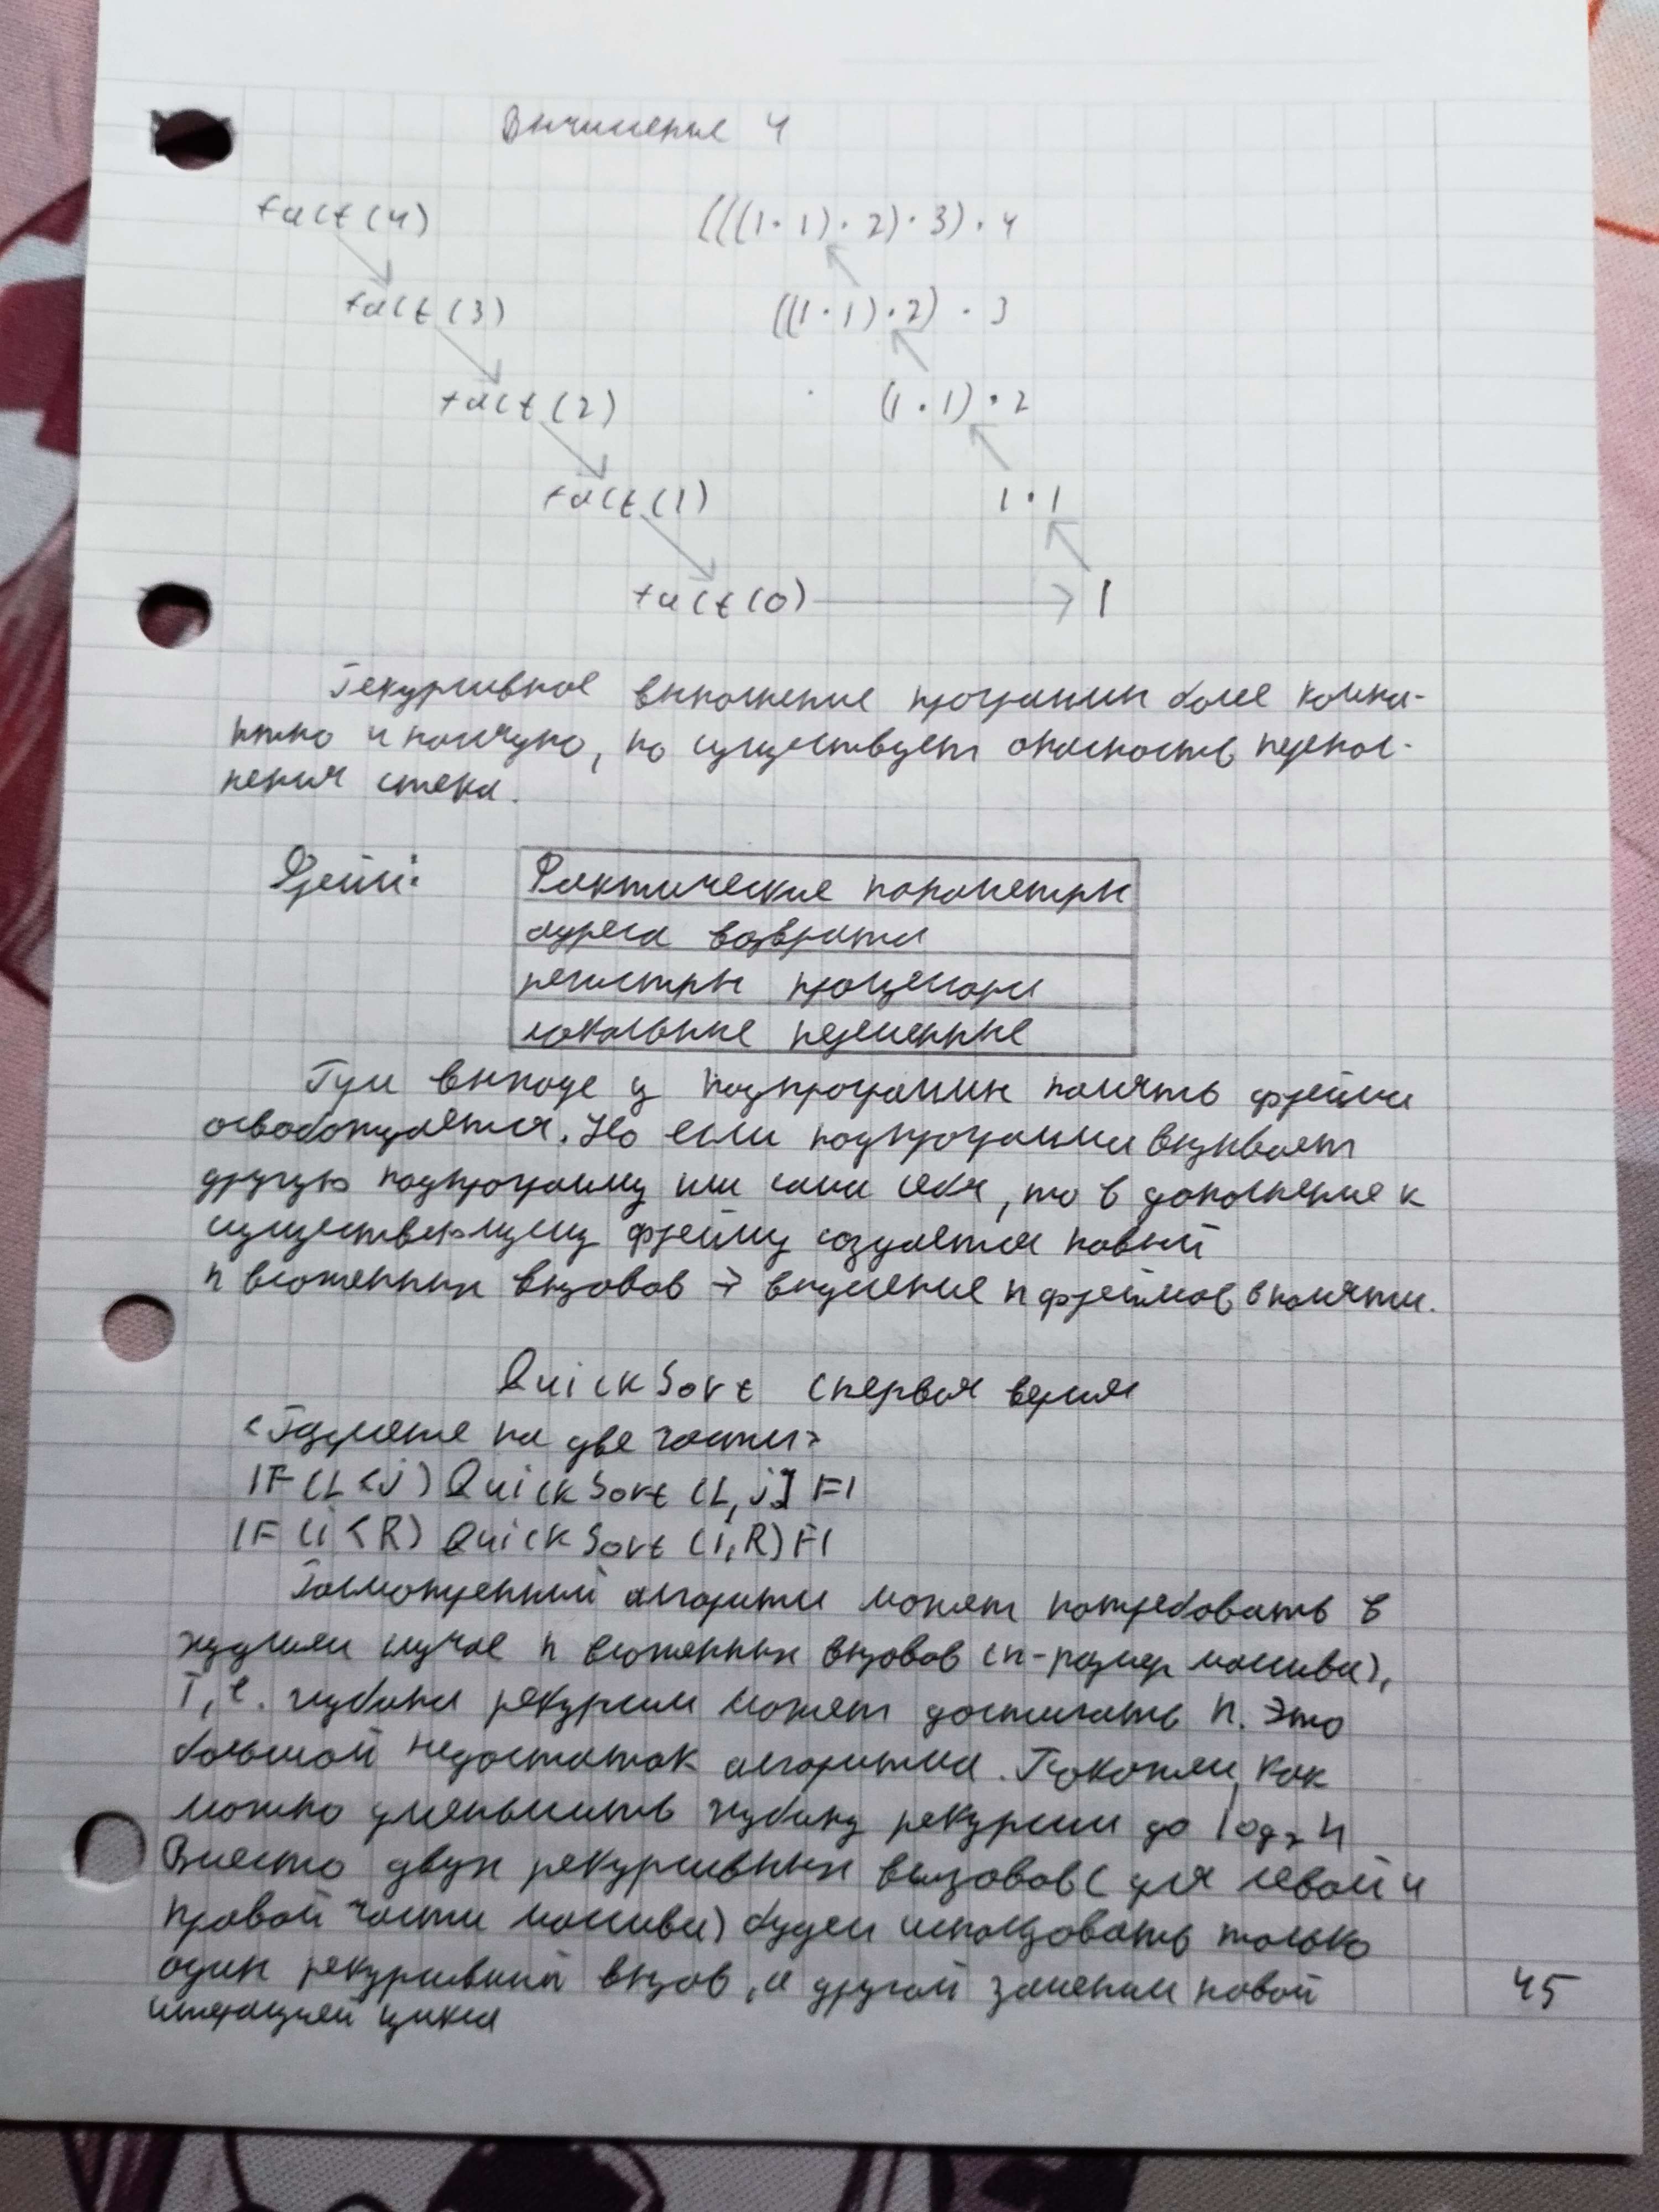 Вычисление 4
fact(4) (((1·1)·2)·3)·4
fact(3) ((1·1)·2)·3
fact(2) (1·1)·2
fact(1) 1·1
fact(0) → 1
Рекурсивное выполнение программы более компа-
ктно и , но существует опасность перепол-
нения стека.
Фрейм: Фактические параметры
адреса возврата
регистры процессора
локальные переменные
При выходе из подпрограммы память фрейма
освобождается. Но если подпрограмма вызывает
другую подпрограмму или сама себя, то в дополнение к
существующему фрейму создается новый
n вложенных вызовов → выделение n фреймов в памяти.
QuickSort (первая версия
<Разделение на две части>
IF (L<j) QuickSort (L,j] FI
IF (i<R) QuickSort (i,R) FI
Рассмотренный алгоритм может потребовать в
худшем случае n вложенных вызовов (n-размер массива),
т.е. глубина рекурсии может достигать n. Это
большой недостаток алгоритма. Покажем, как
можно уменьшить глубину рекурсии до log₂ n
Вместо двух рекурсивных вызовов (для левой и
правой части массива) будем использовать только
один рекурсивный вызов, а другой заменим новой
итерацией цикла
45